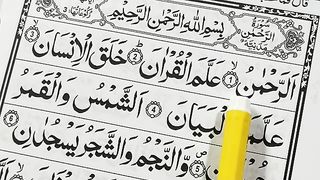 سورة الرحمن مدنية
بسم الله الرحمن الرحيم
الرَّحْمٰنُ ۙ1 عَلَّمَ الْقُرْاٰنَ ؕ2 خَلَقَ الْاِنْسَانَ ۙ3
عَلَّمَهُ الْبَيَانَ 4 اَلشَّمْسُ وَالْقَمَرُ
5 وَّالنَّجْمُ وَالشَّجَرُ يَسْجُدٰنِ 6